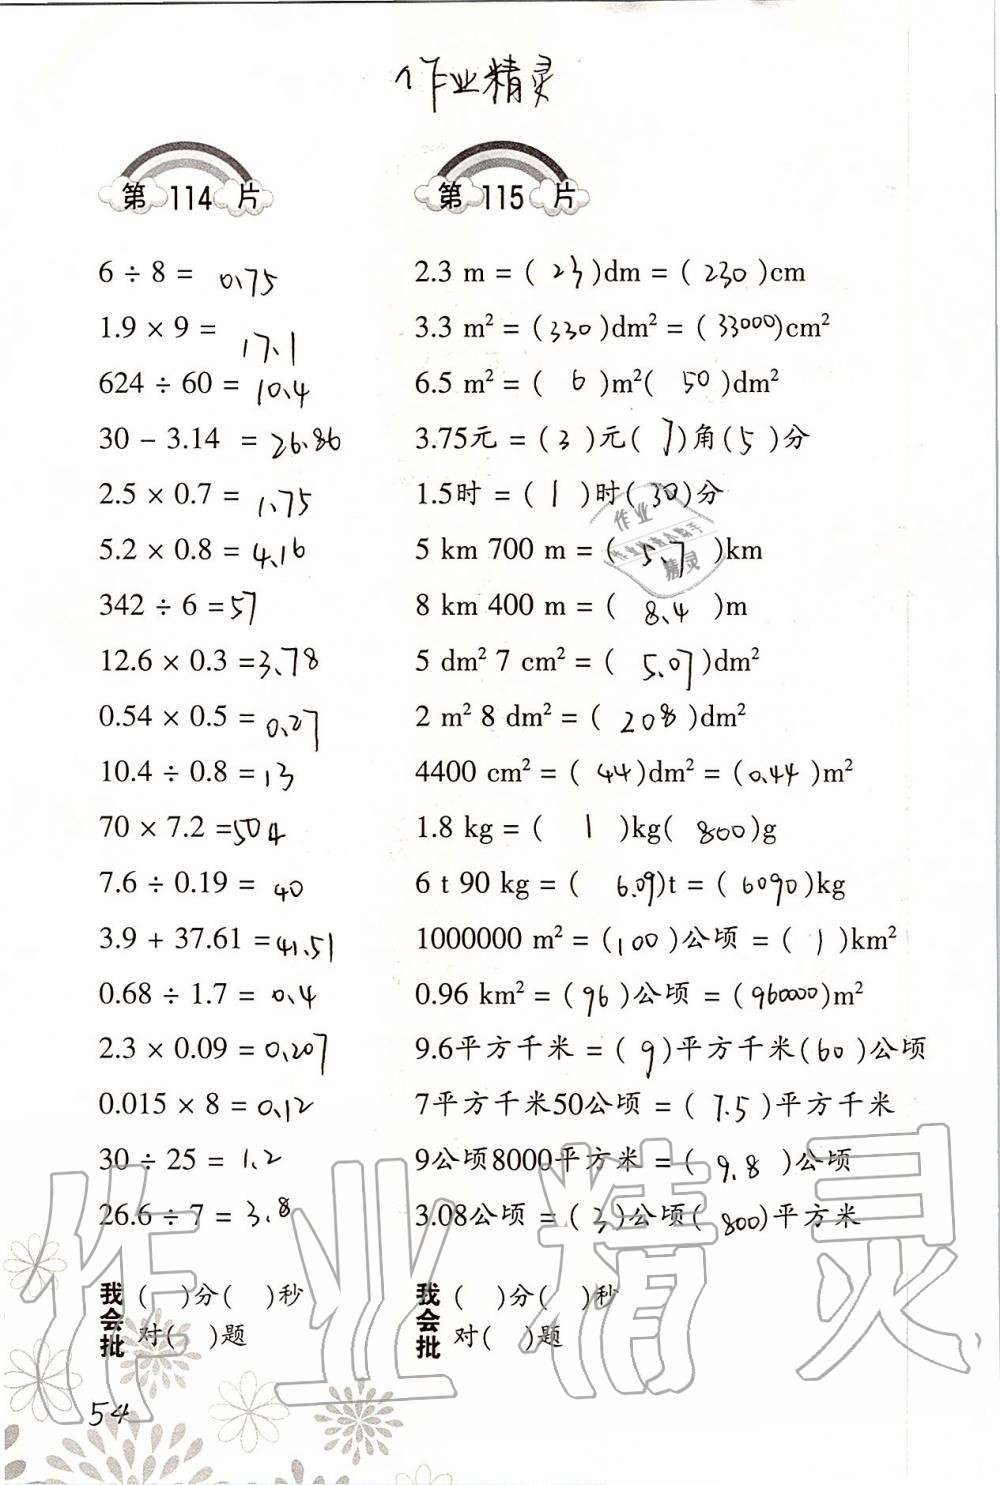 作业精灵
第114片
6 ÷ 8 = 0.75
1.9 × 9 = 17.1
624 ÷ 60 = 10.4
30 - 3.14 = 26.86
2.5 × 0.7 = 1.75
5.2 × 0.8 = 4.16
342 ÷ 6 = 57
12.6 × 0.3 = 3.78
0.54 × 0.5 = 0.27
10.4 ÷ 0.8 = 13
70 × 7.2 = 504
7.6 ÷ 0.19 = 40
3.9 + 37.61 = 41.51
0.68 ÷ 1.7 = 0.4
2.3 × 0.09 = 0.207
0.015 × 8 = 0.12
30 ÷ 25 = 1.2
26.6 ÷ 7 = 3.8
我会批 ( )分( )秒
对( )题
第115片
2.3 m = ( 23 )dm = ( 230 )cm
3.3 m² = ( 330 )dm² = ( 33000 )cm²
6.5 m² = ( 6 )m²( 50 )dm²
3.75元 = ( 3 )元( 7 )角( 5 )分
1.5时 = ( 1 )时( 30 )分
5 km 700 m = ( 5.7 )km
8 km 400 m = ( 8.4 )m
5 dm² 7 cm² = ( 5.07 )dm²
2 m² 8 dm² = ( 208 )dm²
4400 cm² = ( 44 )dm² = ( 0.44 )m²
1.8 kg = ( 1 )kg( 800 )g
6 t 90 kg = ( 6.09 )t = ( 6090 )kg
1000000 m² = ( 100 )公顷 = ( 1 )km²
0.96 km² = ( 96 )公顷 = ( 960000 )m²
9.6平方千米 = ( 9 )平方千米( 60 )公顷
7平方千米50公顷 = ( 7.5 )平方千米
9公顷8000平方米 = ( 9.8 )公顷
3.08公顷 = ( 3 )公顷( 800 )平方米
我会批 ( )分( )秒
对( )题
54
作业精灵
作业
精灵